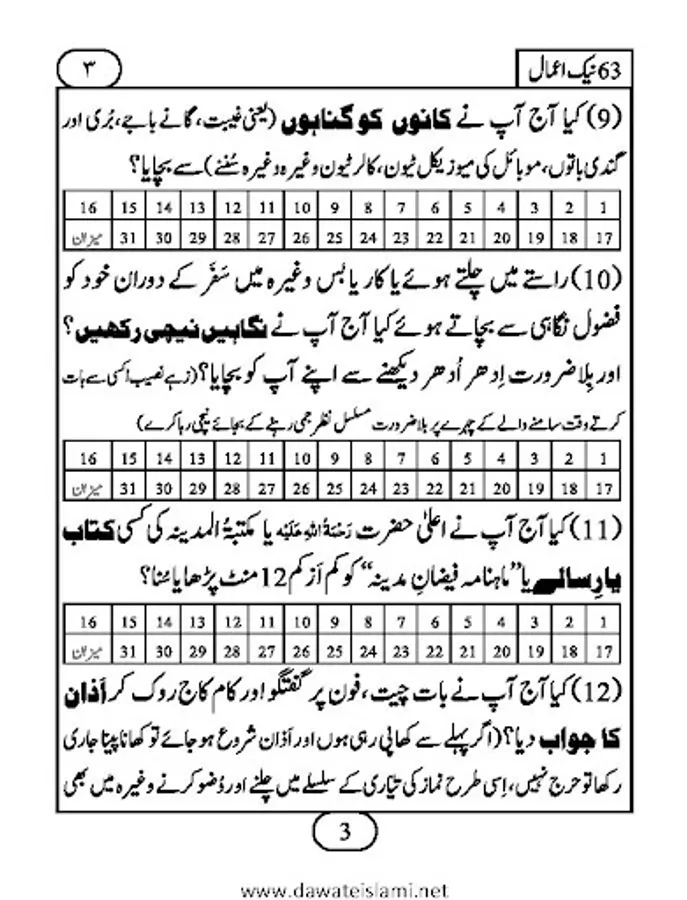 63 نیک اعمال
۳
(9) کیا آج آپ نے کانوں کو گناہوں (یعنی غیبت، گانے باجے، بُری اور
گندی باتوں، موبائل کی میوزیکل ٹیون، کالر ٹیون وغیرہ وغیرہ سُننے) سے بچایا؟
1 2 3 4 5 6 7 8 9 10 11 12 13 14 15 16
17 18 19 20 21 22 23 24 25 26 27 28 29 30 31 میزان
(10) راستے میں چلتے ہوئے یا کار یا بس وغیرہ میں سَفَر کے دوران خود کو
فضول نگاہی سے بچاتے ہوئے کیا آج آپ نے نگاہیں نیچی رکھیں؟
اور بِلا ضرورت اِدھر اُدھر دیکھنے سے اپنے آپ کو بچایا؟ (زہے نصیب! کسی سے بات
کرتے وقت سامنے والے کے چہرے پر بلا ضرورت مسلسل نظر جمی رہنے کے بجائے نیچی رہا کرے)
1 2 3 4 5 6 7 8 9 10 11 12 13 14 15 16
17 18 19 20 21 22 23 24 25 26 27 28 29 30 31 میزان
(11) کیا آج آپ نے اعلیٰ حضرت رَحْمَۃُ اللہِ عَلَیْہ یا مکتبۃُ المدینہ کی کسی کتاب
یا رسالے یا ”ماہنامہ فیضانِ مدینہ“ کو کم اَز کم 12 منٹ پڑھا یا سُنا؟
1 2 3 4 5 6 7 8 9 10 11 12 13 14 15 16
17 18 19 20 21 22 23 24 25 26 27 28 29 30 31 میزان
(12) کیا آج آپ نے بات چیت، فون پر گفتگو اور کام کاج روک کر اَذان
کا جواب دیا؟ (اگر پہلے سے کھا پی رہی ہوں اور اَذان شروع ہو جائے تو کھانا پینا جاری
رکھا تو حرج نہیں، اِسی طرح نماز کی تیّاری کے سلسلے میں چلنے اور وُضو کرنے وغیرہ میں بھی
3
www.dawateislami.net